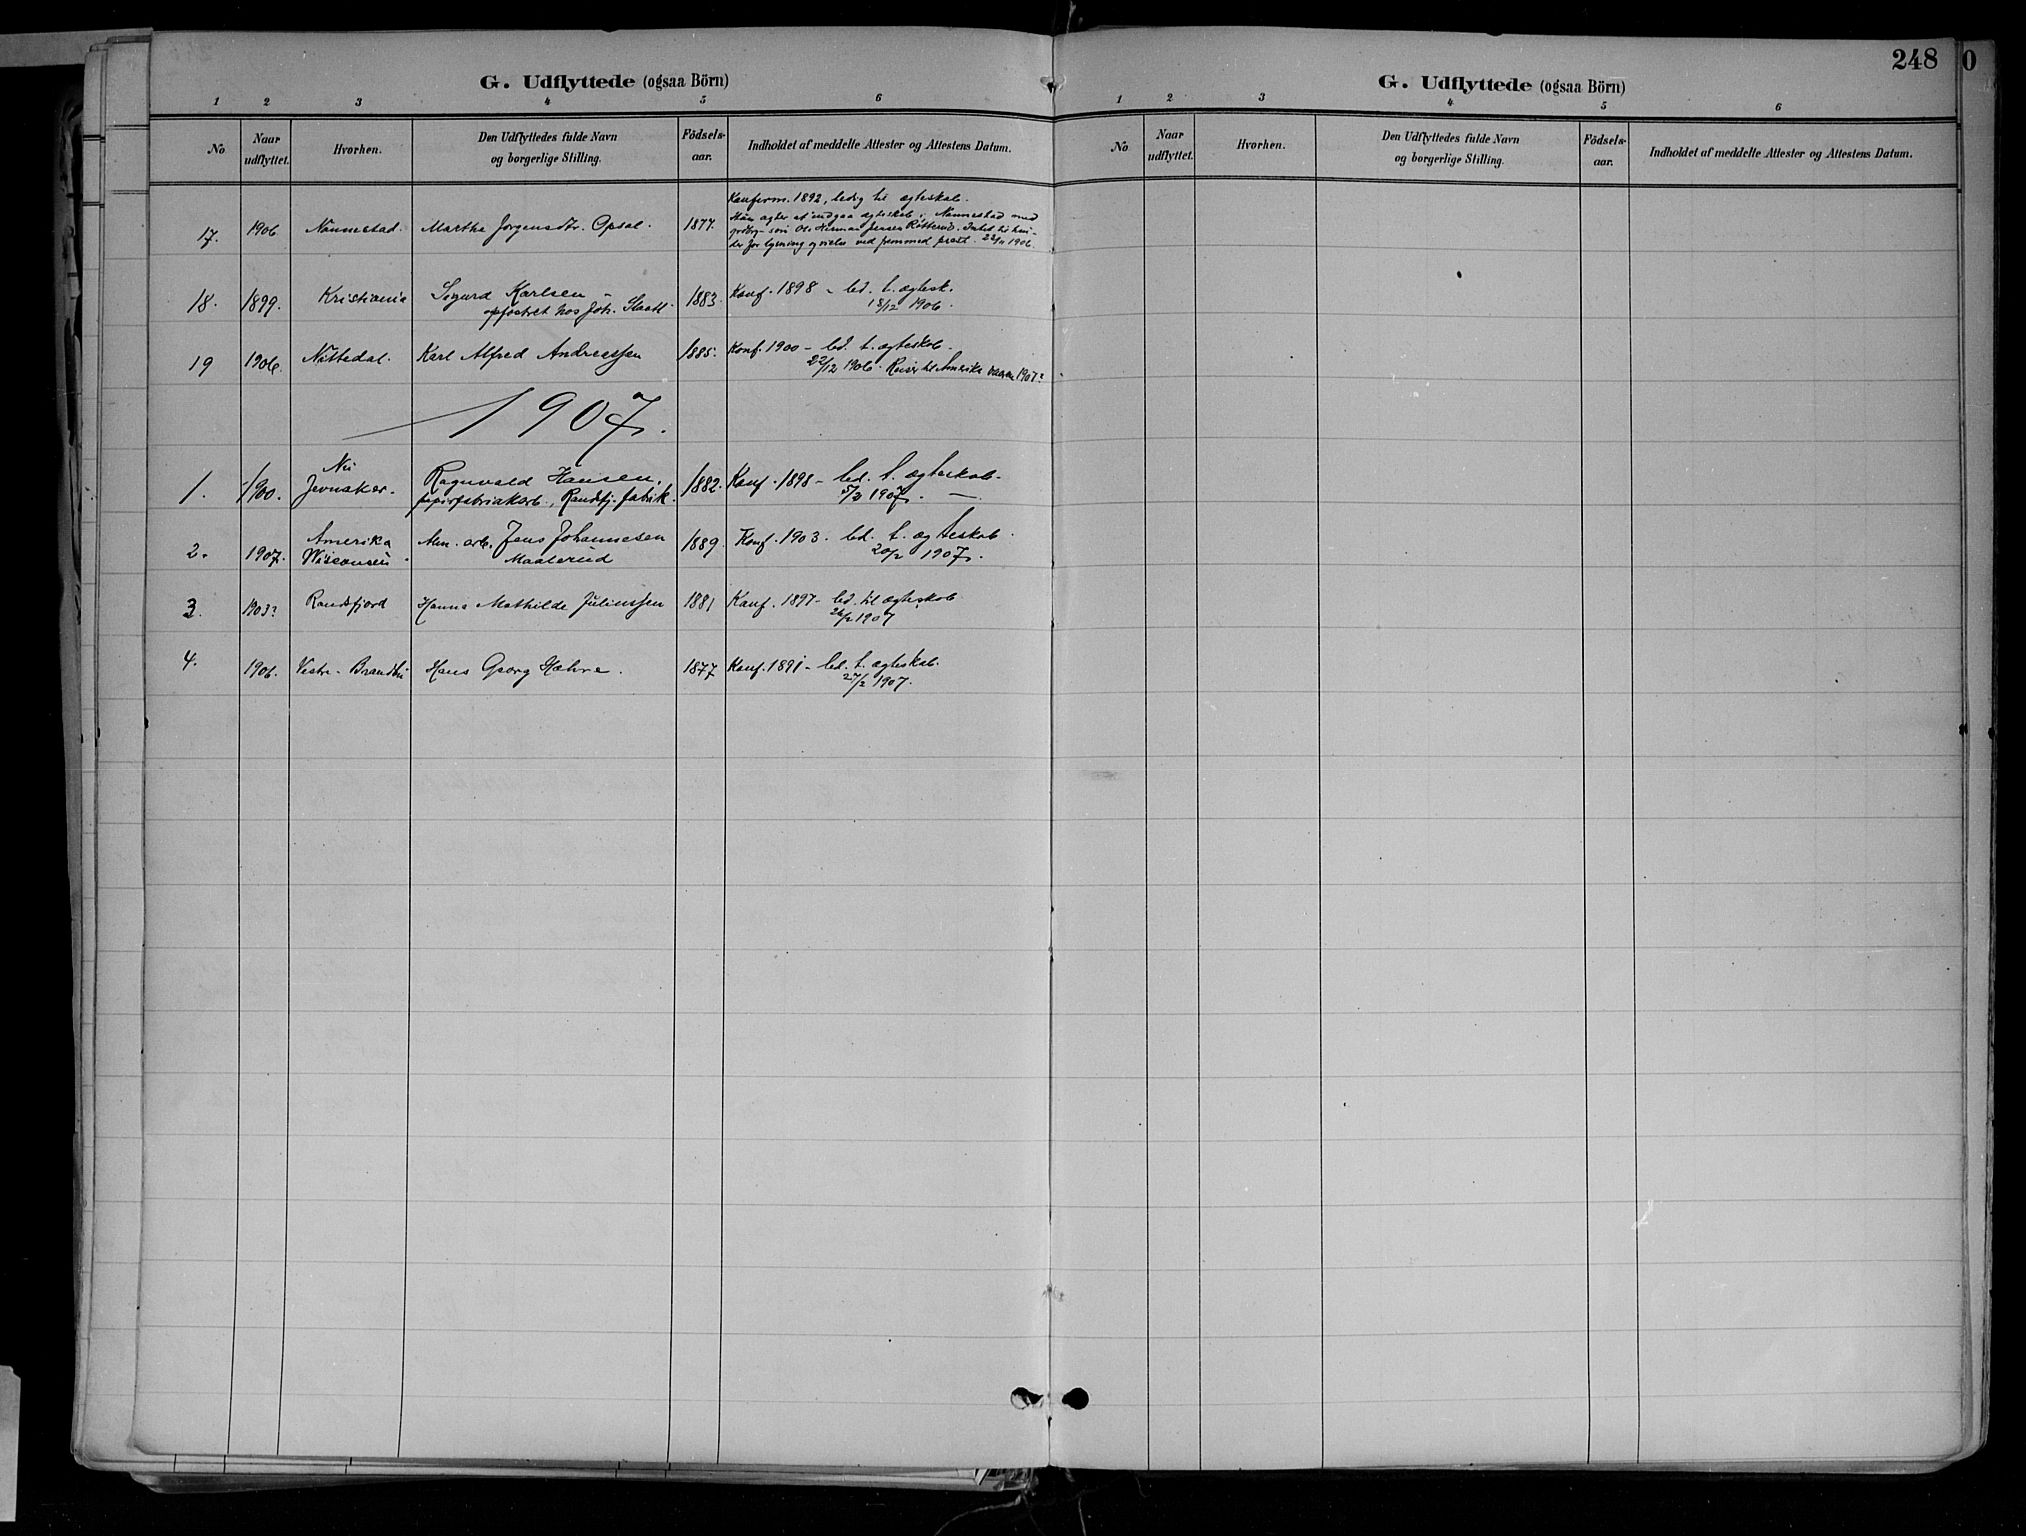 248
0
G. Udflyttede (ogsaa Börn)
1 2 3 4 5 6
No Naar udflyttet. Hvorhen. Den Udflyttedes fulde Navn og borgerlige Stilling. Födsels-aar. Indholdet af meddelte Attester og Attestens Datum.
17. 1906 Nannestad. Marthe Jørgensdtr. Opsal. 1877. Konfirm. 1892, ledig til ægteskab.
Hun agter at indgaa ægteskab i Nannestad med
søn Ole Herman Jensen Intet til hin-
der for lysning og vielse ved fremmed præst. 22/11 1906.
18. 1899. Kristiania Sigurd Karlsen – 1883. Konf. 1898 – led. t. ægtesk.
opfostret hos Joh. 18/12 1906.
19 1906. Nittedal. Karl Alfred Andreassen 1885. Konf. 1900 – led. t. ægteskab.
22/12 1906. Reiser til Amerika vaaren 1907?
1907.
1. 1900. Nu Jevnaker. Ragnvald Hansen, 1882. Konf. 1898 – led. t. ægteskab.
papirfabrikarb., Randsfj. fabrik. 5/2 1907. —
2. 1907. Amerika Wisconsin. Alm. arb. Jens Johannesen 1889. Konf. 1903. led. t. ægteskab.
Maalerud 20/2 1907.
3. 1903? Randsfjord Hanna Mathilde Juliussen 1881 Konf. 1897 – led. til ægteskab.
26/2 1907
4. 1906. Vestre Brandbu Hans Georg Hæhre. 1877 Konf. 1891 – led. t. ægteskab.
27/2 1907.
G. Udflyttede (ogsaa Börn)
1 2 3 4 5 6
No Naar udflyttet. Hvorhen. Den Udflyttedes fulde Navn og borgerlige Stilling. Födsels-aar. Indholdet af meddelte Attester og Attestens Datum.